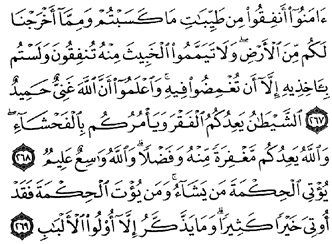 ءَامَنُوٓا۟ أَنفِقُوا۟ مِن طَيِّبَـٰتِ مَا كَسَبْتُمْ وَمِمَّآ أَخْرَجْنَا
لَكُم مِّنَ ٱلْأَرْضِ ۖ وَلَا تَيَمَّمُوا۟ ٱلْخَبِيثَ مِنْهُ تُنفِقُونَ وَلَسْتُم
بِـَٔاخِذِيهِ إِلَّآ أَن تُغْمِضُوا۟ فِيهِ ۚ وَٱعْلَمُوٓا۟ أَنَّ ٱللَّهَ غَنِىٌّ حَمِيدٌ
٢٦٧ ٱلشَّيْطَـٰنُ يَعِدُكُمُ ٱلْفَقْرَ وَيَأْمُرُكُم بِٱلْفَحْشَآءِ ۖ
وَٱللَّهُ يَعِدُكُم مَّغْفِرَةً مِّنْهُ وَفَضْلًا ۗ وَٱللَّهُ وَٰسِعٌ عَلِيمٌ ٢٦٨
يُؤْتِى ٱلْحِكْمَةَ مَن يَشَآءُ ۚ وَمَن يُؤْتَ ٱلْحِكْمَةَ فَقَدْ
أُوتِىَ خَيْرًا كَثِيرًا ۗ وَمَا يَذَّكَّرُ إِلَّآ أُو۟لُوا۟ ٱلْأَلْبَـٰبِ ٢٦٩